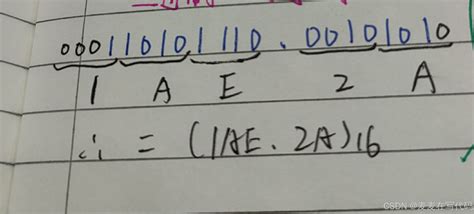 000110101110.00101010
1 A E 2 A
∴ = (1AE.2A)16
CSDN @麦麦在写代码